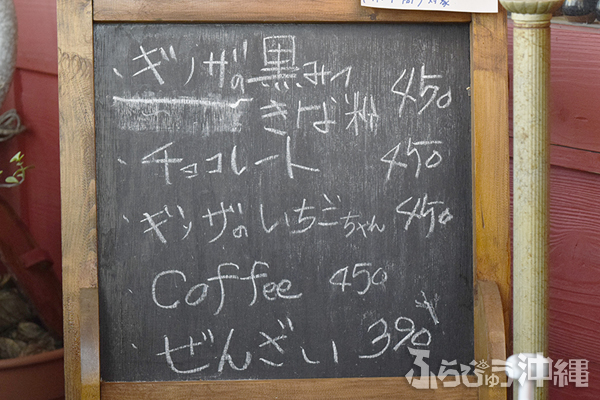 ギンザの黒みつ 450
きなこ粉
チョコレート 450
ギンザのいちごちゃん 450
Coffee 450
ぜんざい 390
ふらびゅう沖縄